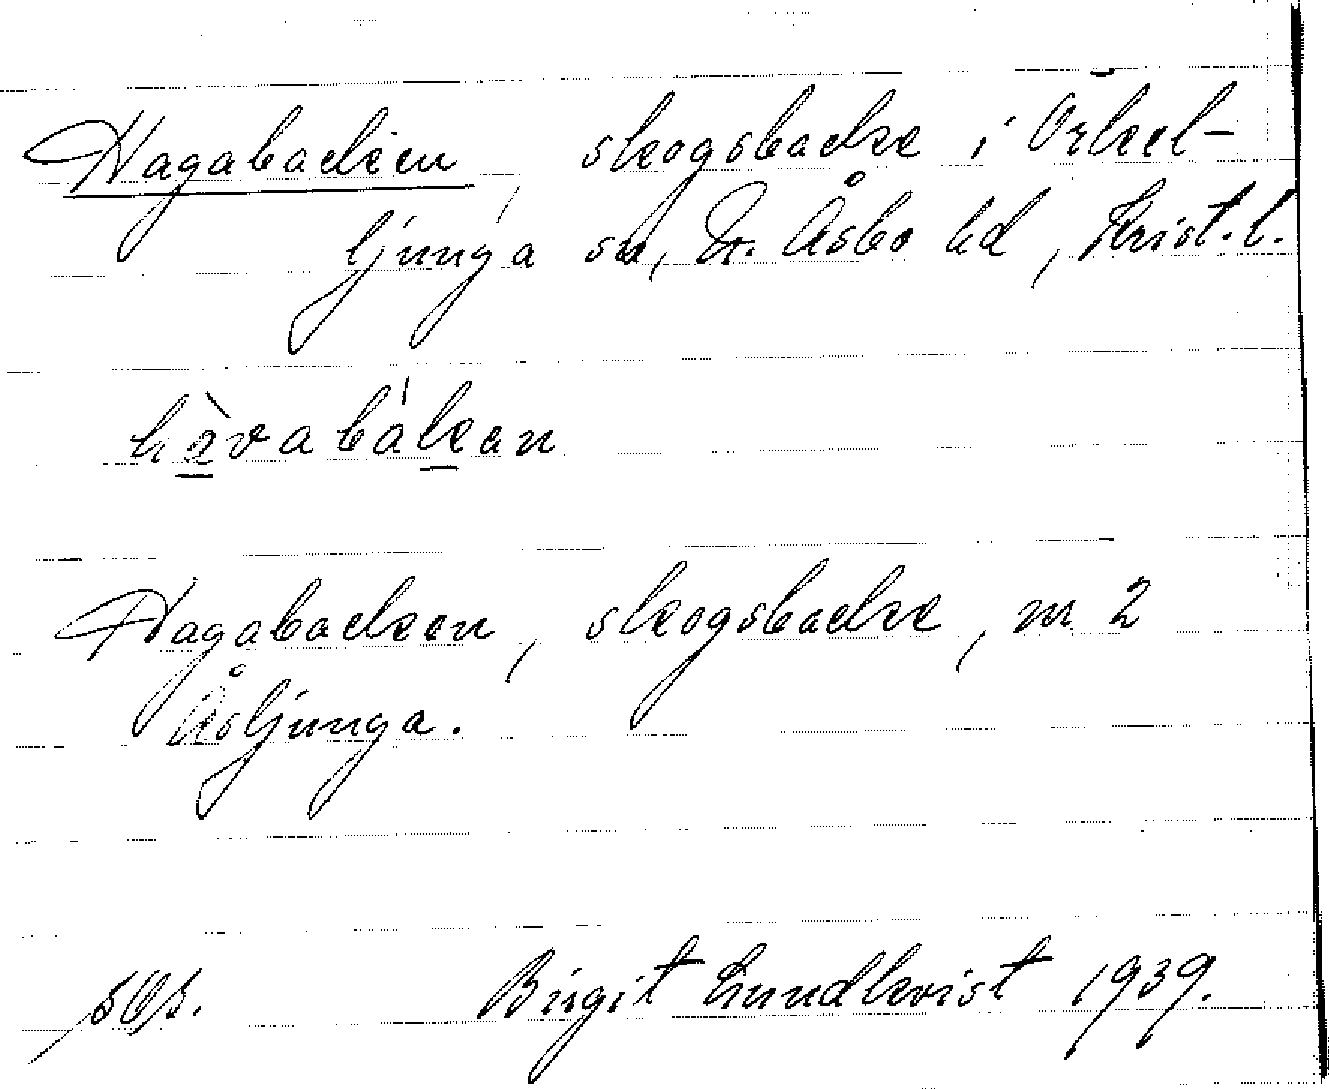 Hagabacken, skogsbacke i Örkel-
ljunga sn, N. Åsbo hd, Krist. l.
hàvabákan
Hagabacken, skogsbacke, m 2
Åsljunga.
Birgit Lundkvist 1939.